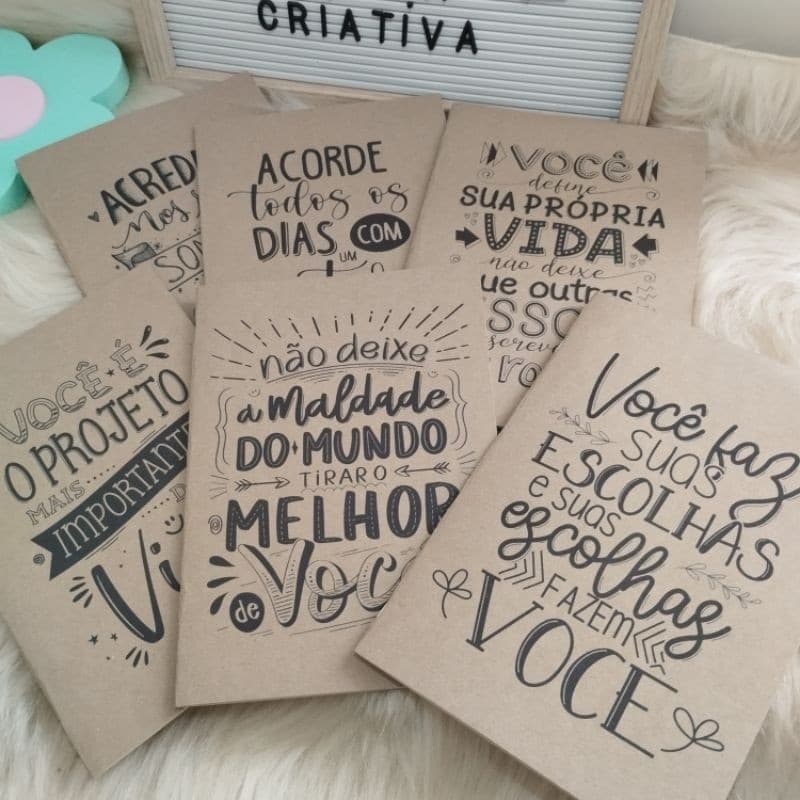 CRIATIVA
ACORDE
todos os
DIAS COM
UM
VOCÊ
define
SUA PRÓPRIA
VIDA
não deixe
que outras
VOCÊ É
O PROJETO
MAIS
IMPORTANTE
não deixe
a maldade
DO MUNDO
TIRAR O
MELHOR
de VOCÊ
Você faz
suas
ESCOLHAS
e suas
escolhas
FAZEM
VOCÊ